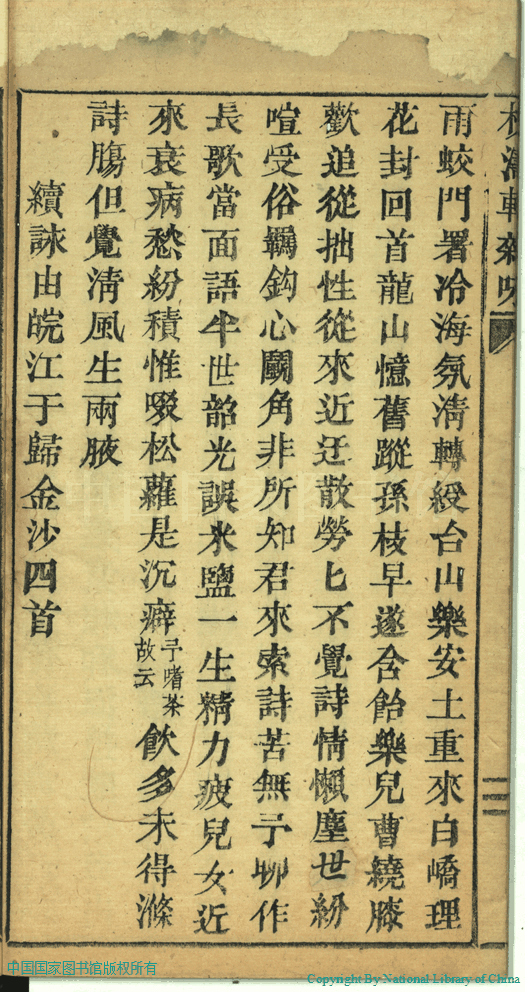 軒雜咏
二
雨蛟門署冷海氛清轉綬台山樂安土重來白嶠理
花封回首龍山憶舊蹤孫枝早遂含飴樂兒曹繞膝
歡追從拙性從來近迂散勞匕不覺詩情懶塵世紛
喧受俗羈鈎心鬭角非所知君來索詩苦無予聊作
長歌當面語半世韶光誤米鹽一生精力疲兒女近
來衰病愁紛積惟啜松蘿是沉癖予嗜茶故云飲多未得滌
詩膓但覺淸風生兩腋
續詠由皖江于歸金沙四首
中国国家图书馆版权所有
Copyright By National Library of China